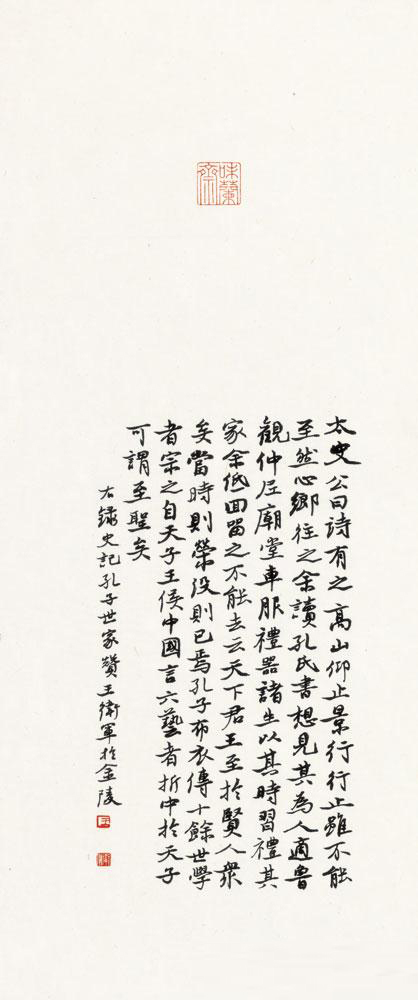 太史公曰詩有之高山仰止景行行止雖不能
至然心鄉往之余讀孔氏書想見其為人適魯
觀仲尼廟堂車服禮器諸生以其時習禮其
家余低回留之不能去云天下君王至於賢人衆
矣當時則榮沒則已焉孔子布衣傳十餘世學
者宗之自天子王侯中國言六藝者折中於夫子
可謂至聖矣
右錄史記孔子世家贊王衛軍於金陵